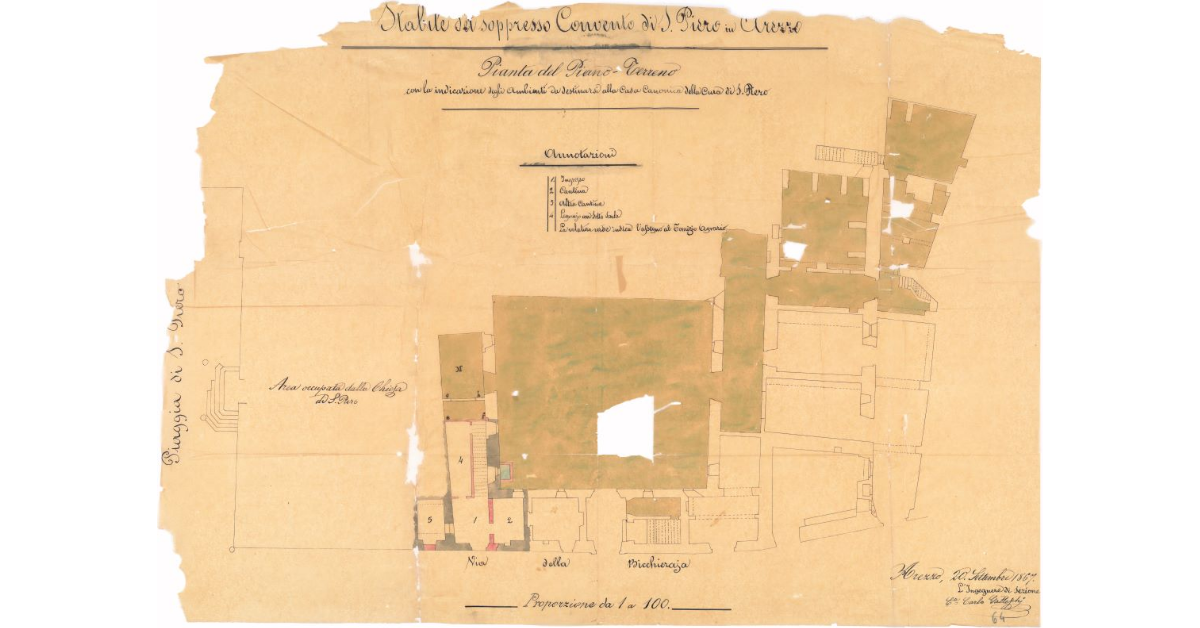 Stabile del soppresso Convento di S. Piero in Arezzo
Pianta del Piano-Terreno
con la indicazione degli Ambienti da destinarsi alla Casa Canonica della Cura di S. Piero
Annotazioni
1 Ingresso
2 Cantina
3 Altra Cantina
4
La tinta verde indica
Piaggia di S. Piero
Area occupata dalla Chiesa
di S. Piero
4
5
1
2
Via della Bicchieraja
Proporzione da 1 a 100.
Arezzo, 20 Settembre 1867.
L'Ingegnere di Sezione
Carlo
64